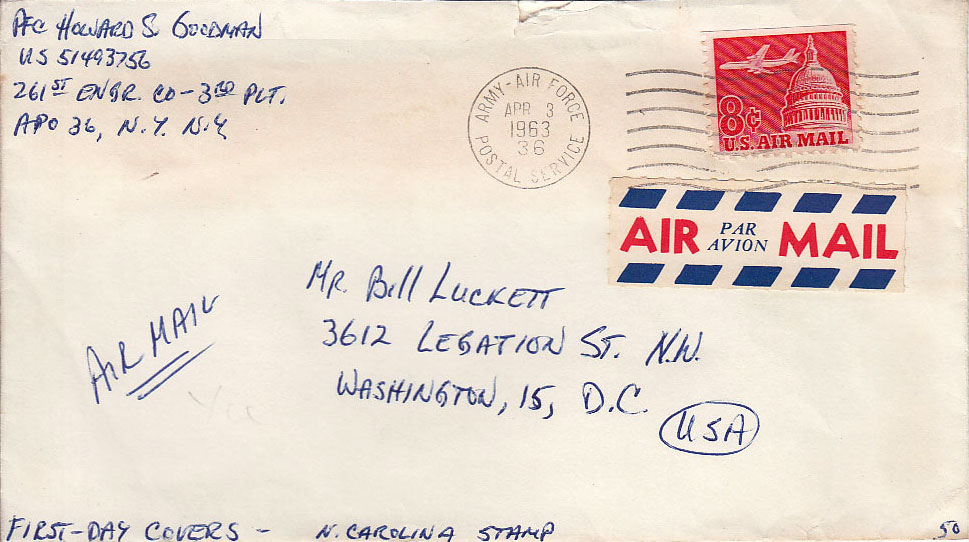 PFC HOWARD S. GOODMAN
US 51493756
261ST ENGR. CO - 3RD PLT.
APO 36, N.Y. N.Y.
ARMY-AIR FORCE
APR 3
1963
36
POSTAL SERVICE
8¢
U.S. AIR MAIL
AIR PAR AVION MAIL
MR. Bill LUCKETT
3612 LEGATION ST. N.W.
WASHINGTON, 15, D.C.
USA
AIR MAIL
FIRST-DAY COVERS - N. CAROLINA STAMP
50